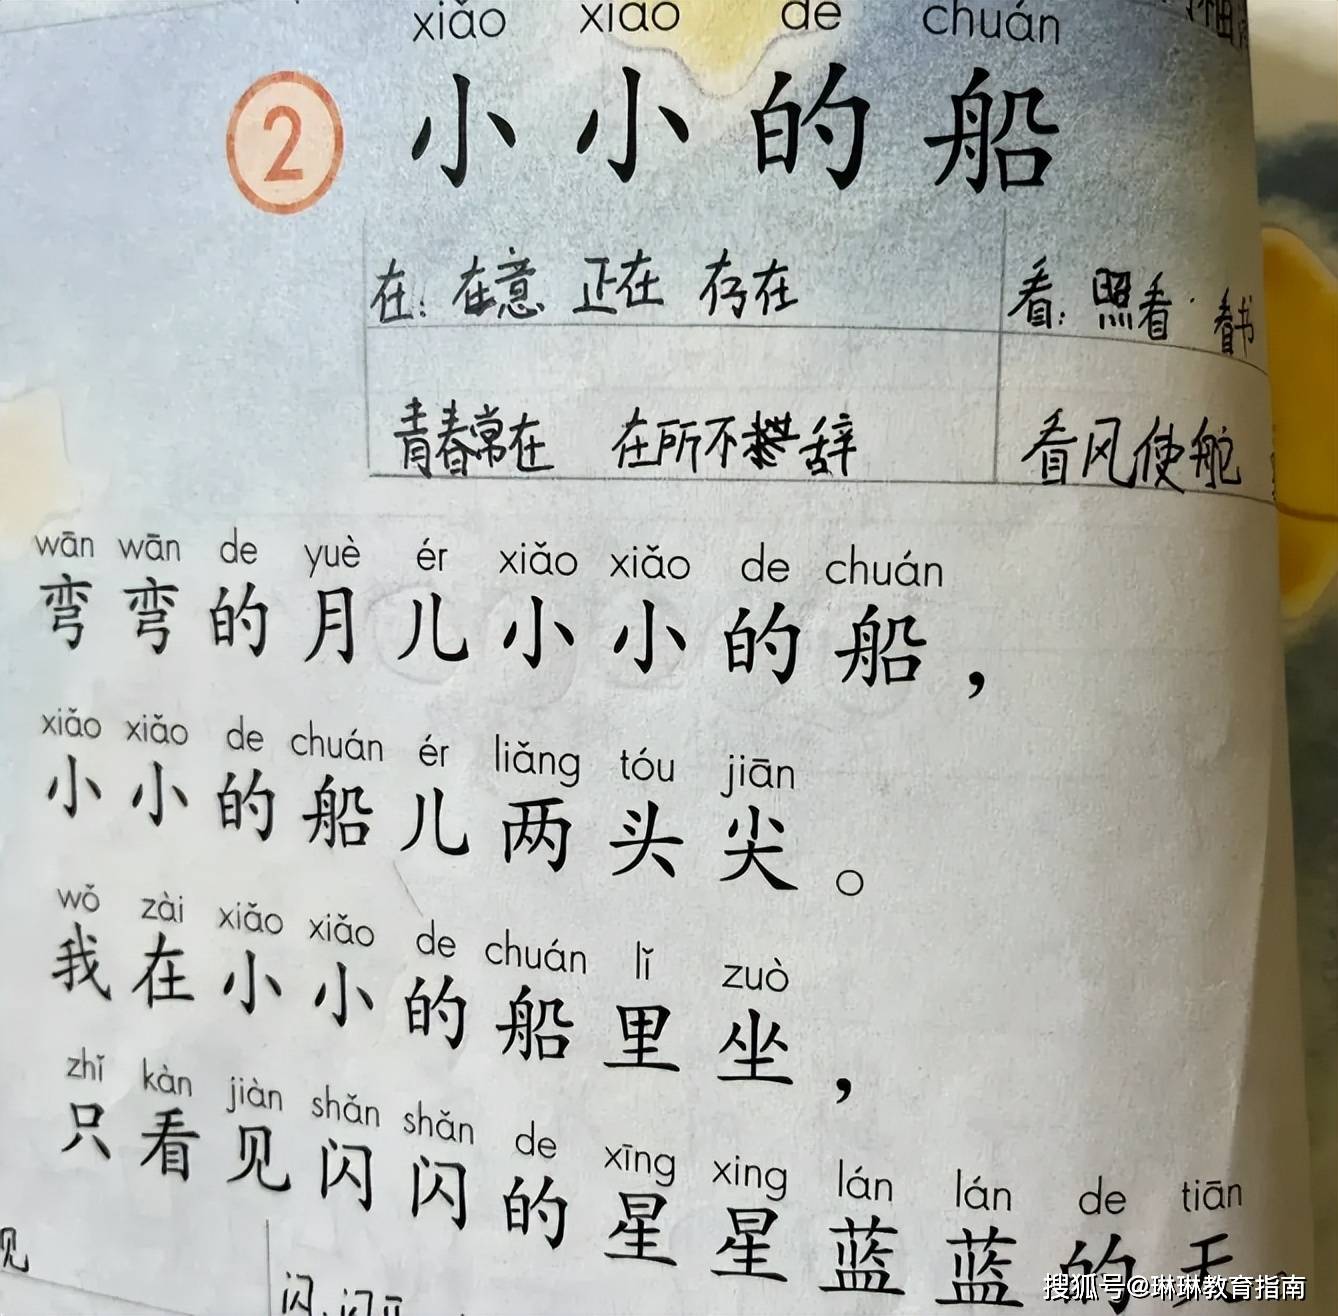 xiǎo xiǎo de chuán
2 小小的船
在：在意 正在 存在 看：照看 看书
青春常在 在所不辞 看风使舵
wān wān de yuè ér xiǎo xiǎo de chuán
弯弯的月儿小小的船，
xiǎo xiǎo de chuán ér liǎng tóu jiān
小小的船儿两头尖。
wǒ zài xiǎo xiǎo de chuán lǐ zuò
我在小小的船里坐，
zhǐ kàn jiàn shǎn shǎn de xīng xing lán lán de tiān
只看见闪闪的星星蓝蓝的天。
见
闪：
搜狐号@琳琳教育指南